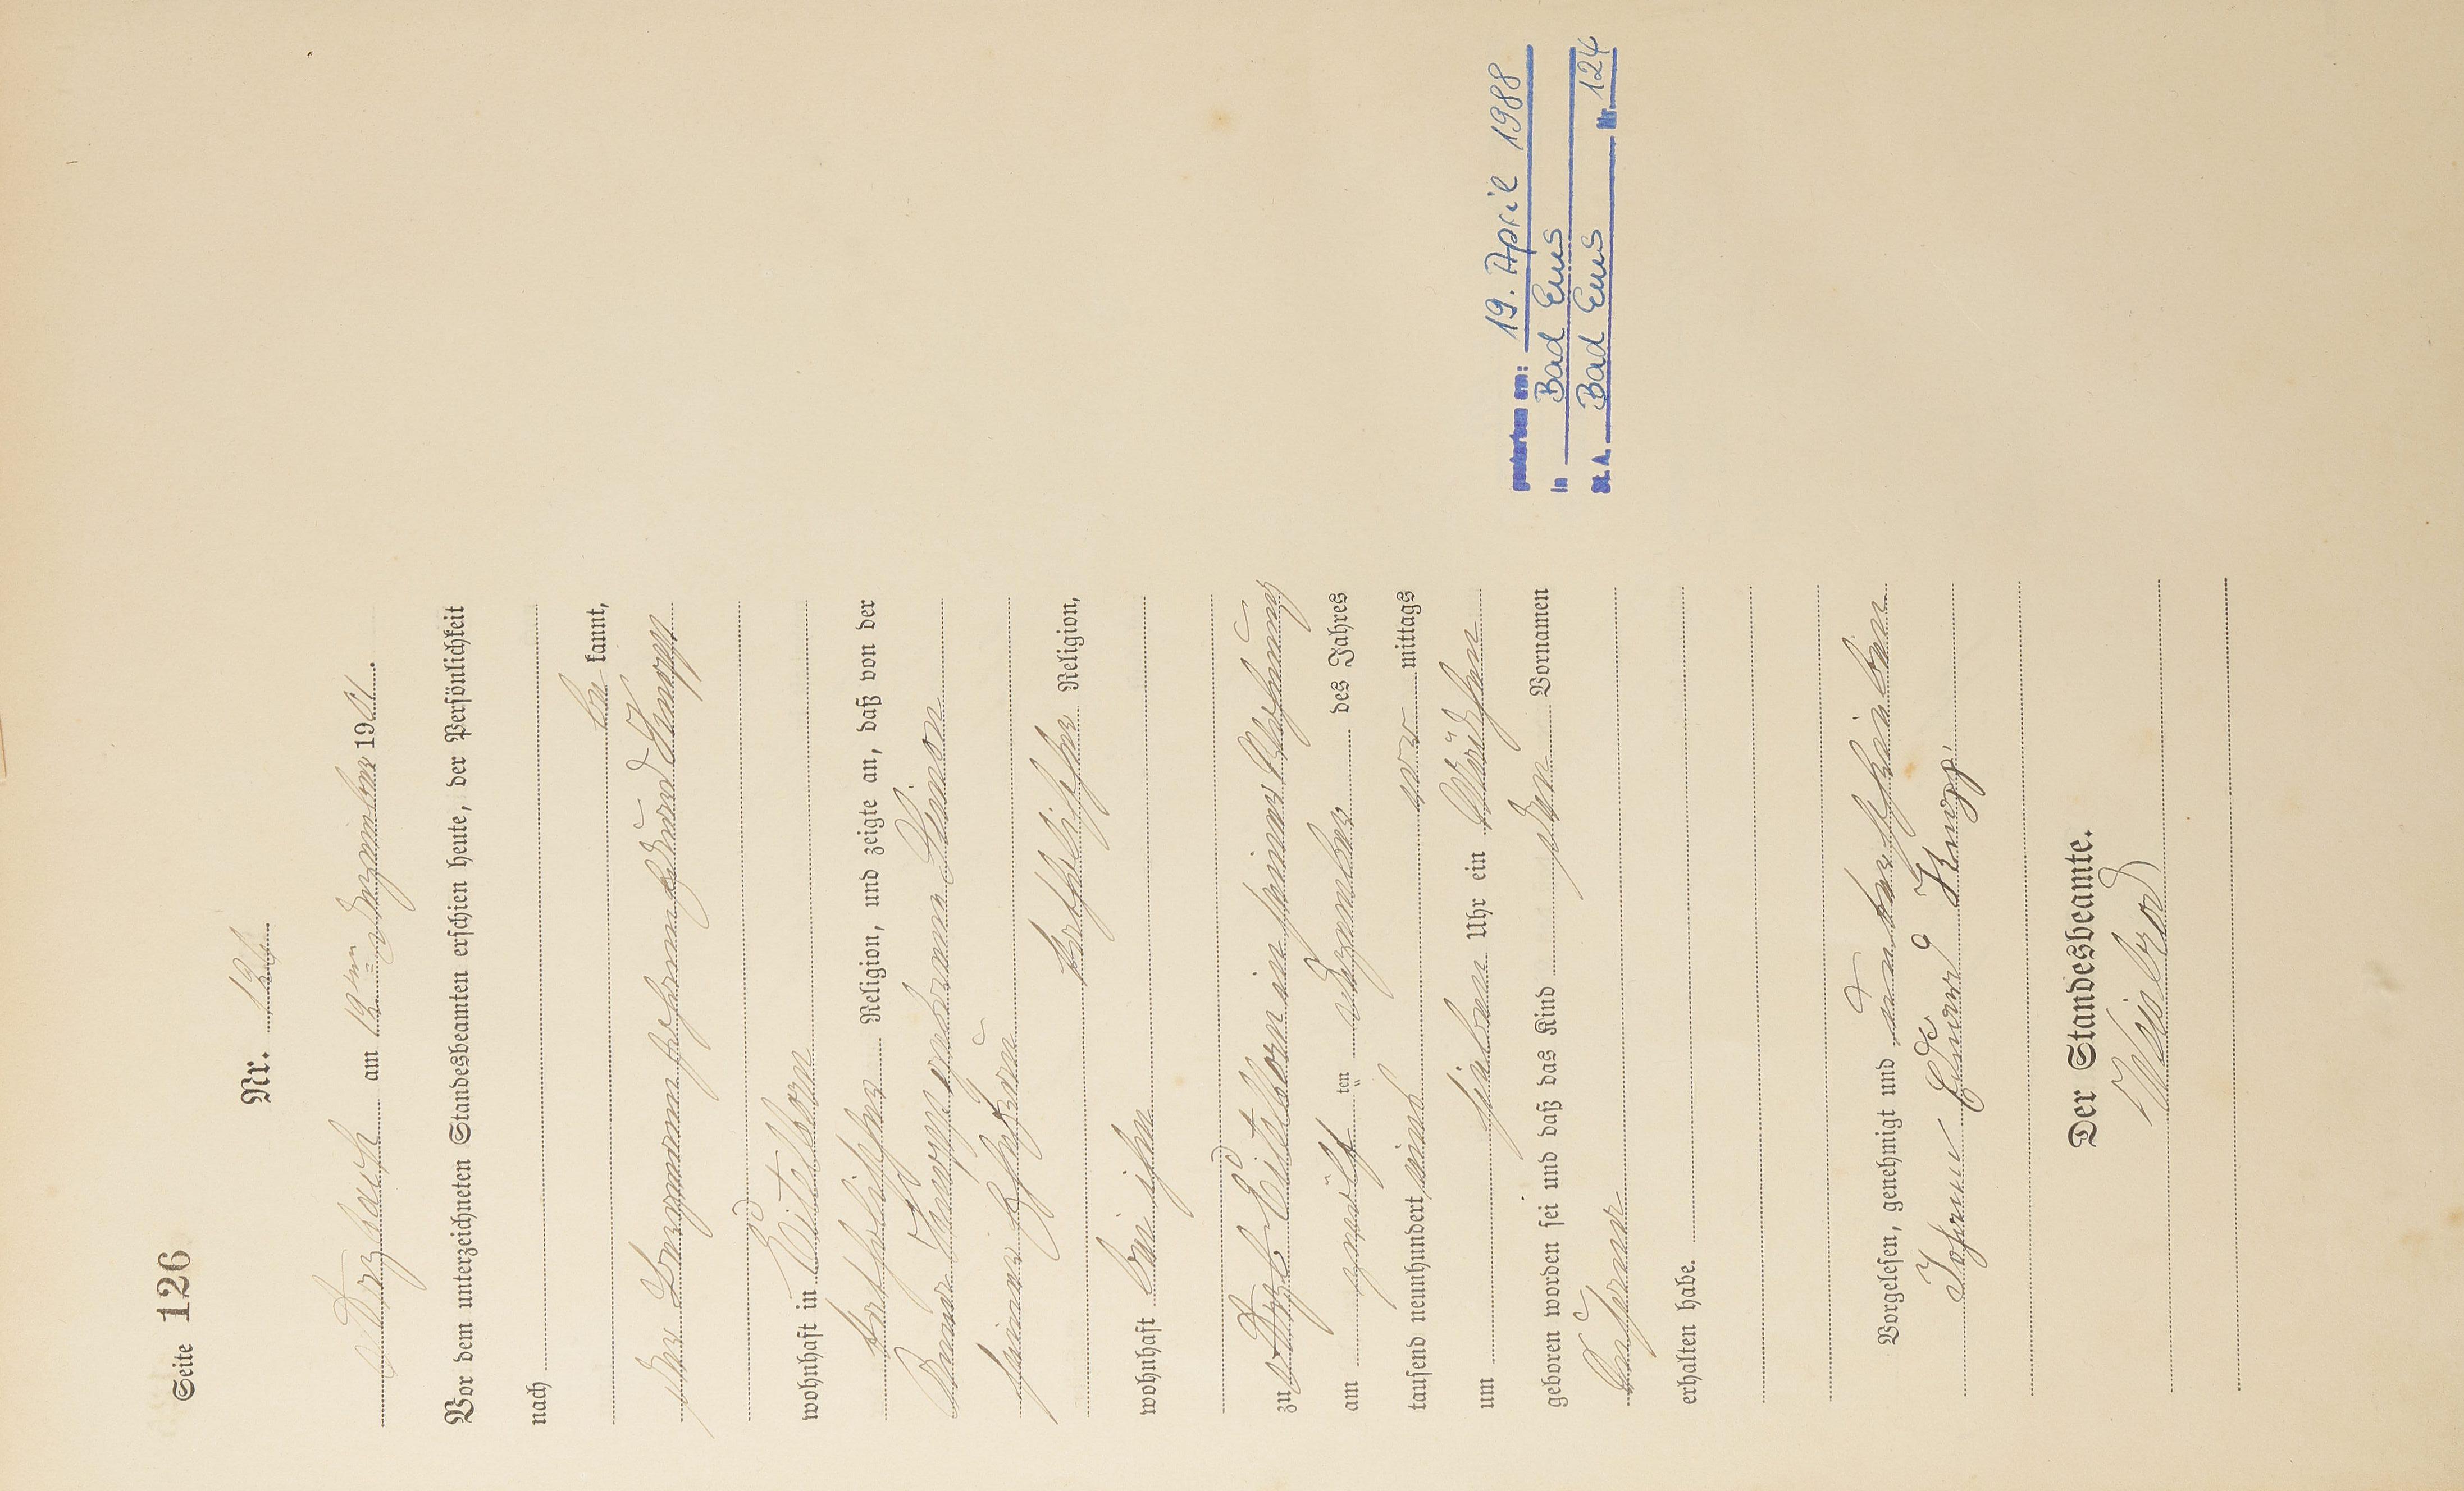 Seite 126
Nr. 126
Arzbach am 13ten Dezember 1901.
Vor dem unterzeichneten Standesbeamten erschien heute, der Persönlichkeit
nach
be kannt,
der Bergmann Johann Eduard Knopp
wohnhaft in Eitelborn
katholischer Religion, und zeigte an, daß von der
Knopp geborenen Simon
seiner Ehefrau
katholischer Religion,
wohnhaft bei ihm
zu Eitelborn in seiner Wohnung
am zwölf ten Dezember des Jahres
tausend neunhundert eins vor mittags
um sieben Uhr ein Mädchen
geboren worden sei und daß das Kind den Vornamen
erhalten habe.
Vorgelesen, genehmigt und unterschrieben
Johann Eduard Knopp.
Der Standesbeamte.
gestorben am: 19. April 1988
in Bad Ems
St. A. Bad Ems Nr. 124